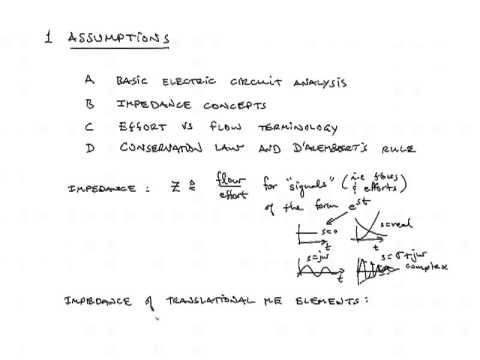 1 ASSUMPTIONS
A BASIC ELECTRIC CIRCUIT ANALYSIS
B IMPEDANCE CONCEPTS
C EFFORT VS FLOW TERMINOLOGY
D CONSERVATION LAW AND D'ALEMBERT'S RULE
IMPEDANCE : Z ≜ flow/effort for "signals" (i.e flows & efforts)
of the form e^st
s=0 t s=real t
s=jω t s=σ+jω complex
IMPEDANCE of TRANSLATIONAL ME ELEMENTS :